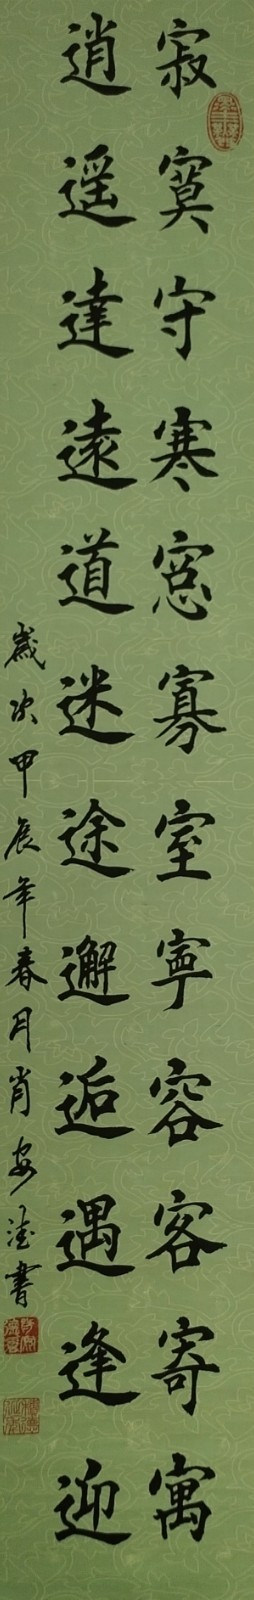 寂寞守寒窓寡室寧容客寄寓
逍遥達遠道迷途邂逅遇逢迎
歲次甲辰年春月肖安德書